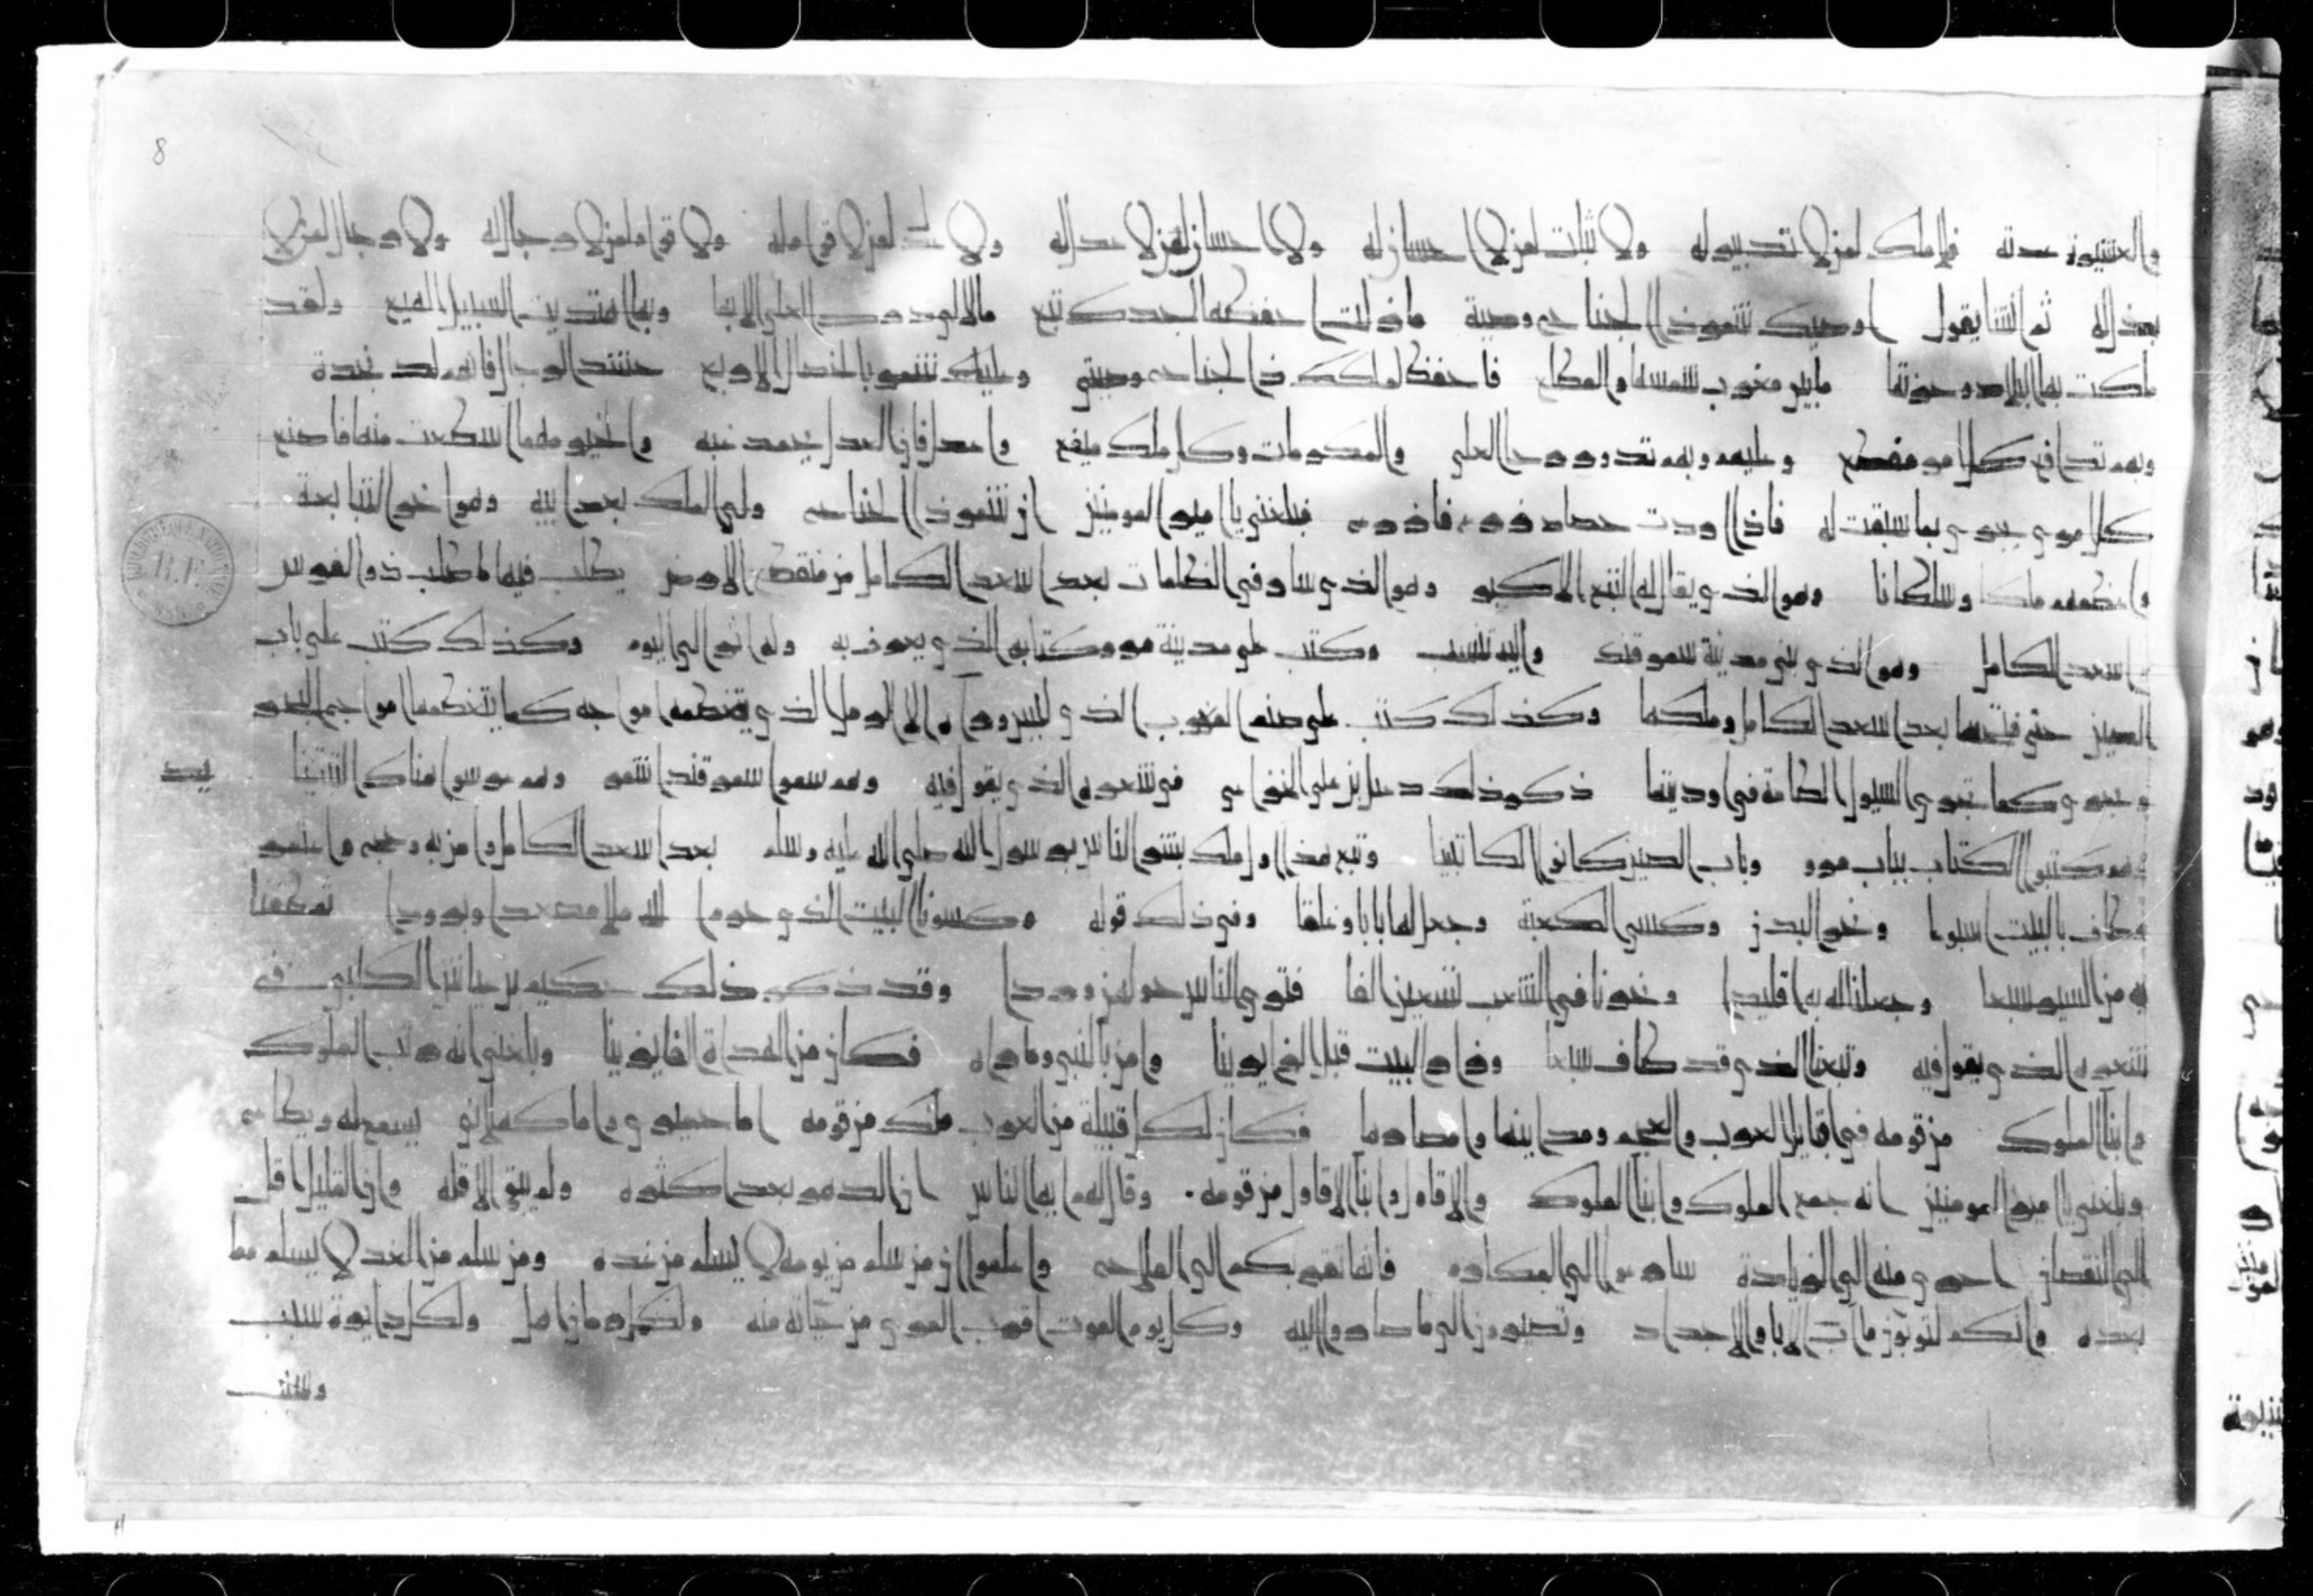 والعشيرة عدته فلا ملك لمن لا تدبير له ولا ثبات لمن لا احسان له ولا احسان لمن لا عدل له ولا عدل لمن لا قوام له ولا قوام لمن لا رجال له ولا رجال لمن لا
بذل له ثم انشا يقول اوصيك شمر ذا الجناح وصية ما ان لها
ملكت بها البلاد وحزتها ما بين مغرب شمسها والمطلع فاحفظ لملكك ذا الجناح وصيتي وعليك شمر با
وبهم تدافع كل امر مفظع وعليهم وبهم تدور رحا العلي والمكرمات وكل ملك ميفع واعدل فان العدل يحمد غبه والخير مهما اسطعت منه فاصنع
كل امري يجزي بما سبقت له فاذا اردت حصاد زرع فازرع فبلغني يا امير المومنين ان شمر ذا الجناح ولي الملك بعد ابيه وهو اخر التبابعة
واعظمهم ملكا وسلطانا وهو الذي يقال له التبع الاكبر وهو الذي سار في الظلمات بعد اسعد الكامل من منقطع الارض يطلب فيها ما طلب ذو القرنين
اسعد الكامل وهو الذي بني مدينة سمرقند واليه تنسب وكتب علي مدينة مرو كتابه الذي يعرف به وله اثر الي اليوم وكذلك كتب علي باب
الصين حتي فتحها بعد اسعد الكامل وملكها وكذلك كتب علي صنم المغرب الذي ليس وراه الا الرمل الذي تتغطمط امواجه كما يتغطمط امواج البحر
وتجري كما تجري السيول الطامة في اوديتها ذكر ذلك دعبل بن علي الخزاعي في شعره الذي يقول فيه وهم سموا سمرقندا بشمر وهم غرسوا هناك التبتينا
وهم كتبوا الكتاب بباب مرو وباب الصين كانوا الكاتبينا وتبع هذا اول ملك بشر الناس برسول الله صلي الله عليه وسلم بعد اسعد الكامل وامن به وحج واعتمر
وطاف بالبيت اسبوعا ونحر البدن وكسي الكعبة وجعل لها بابا وغلقا وفي ذلك قوله وكسونا البيت الذي حرم الله ملا معضدا وبرودا ثم طفنا
به من السير سبعا وجعلنا له به اقليدا ونحرنا في الشعب تسعين الفا فتري الناس حولهن ورودا وقد ذكر ذلك حكيم بن عياش الكلبي في
شعره الذي يقول فيه وتبعنا الذي قد طاف سبعا وزار البيت قبل الزايرينا وامن بالنبي وما راه فكان من الهداة الفايزينا وبلغني انه رتب الملوك
وابنا الملوك من قومه في قبايل العرب والعجم ومداينها وامصارها فكان لكل قبيلة من العرب ملك من قومه اما حميري واما كهلاني يسمع له ويطاع
وبلغني يا امير المومنين انه جمع الملوك وابنا الملوك والاقاول وابنا الاقاول من قومه وقال لهم ايها الناس ان الدهر بعد اكثره ولم يبق الا اقله وان القليل اقل
الي النقصان احري منه الي الزيادة سارعوا الي المكارم فانها تقربكم الي الفلاح واعلموا ان من سلم من يومه لا يسلم من غده ومن سلم من الغد لا يسلم مما
بعده وانكم لتوتون مات الابا والاجداد وتصيرون الي ما صاروا اليه وكل يوم الموت اقرب للمري من حياته منه ولكل زمان اهل ولكل دايرة سبب
وسبب
8